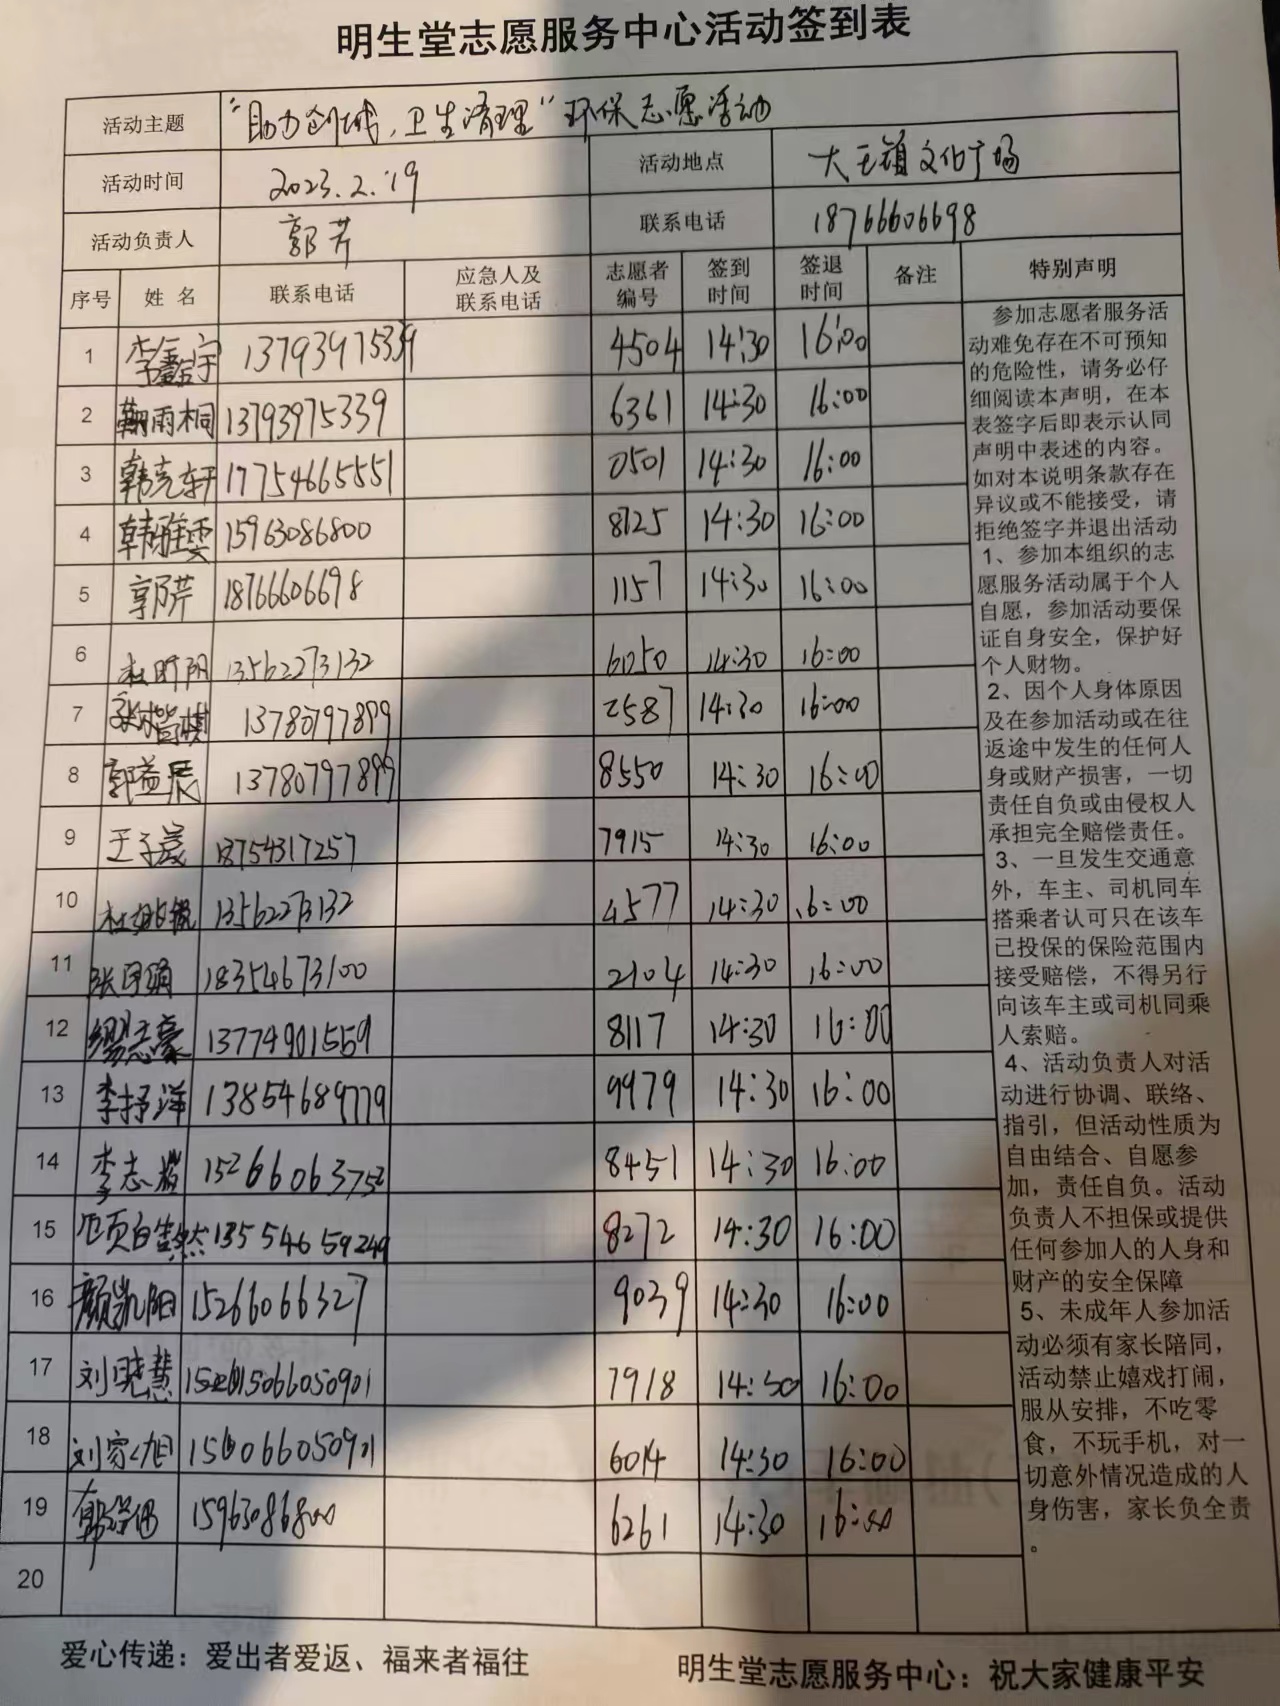 明生堂志愿服务中心活动签到表
活动主题 "助力创城，卫生清理"环保志愿活动
活动时间 2023.2.19 活动地点 大王镇文化广场
活动负责人 郭芹 联系电话 18766606698
序号 姓名 联系电话 应急人及联系电话 志愿者编号 签到时间 签退时间 备注 特别声明
1 李鑫宇 13793975339 4504 14:30 16:00
2 靳雨桐 13793975339 6361 14:30 16:00
3 韩克轩 17754665551 0501 14:30 16:00
4 韩雅雯 15963086800 8125 14:30 16:00
5 郭芹 18766606698 1157 14:30 16:00
6 杜昕阳 13562273132 6050 14:30 16:00
7 13780797899 2587 14:30 16:00
8 郭益辰 13780797899 8550 14:30 16:00
9 王子晟 18754317257 7915 14:30 16:00
10 杜 13562273132 4577 14:30 16:00
11 张 18354673100 2104 14:30 16:00
12 缪志豪 13774901559 8117 14:30 16:00
13 李抒洋 13854689779 9979 14:30 16:00
14 李志 15266063752 8451 14:30 16:00
15 13554659249 8272 14:30 16:00
16 颜凯阳 15266066327 9039 14:30 16:00
17 刘晓慧 15066050901 7918 14:30 16:00
18 刘家旭 15606605090 6014 14:30 16:00
19 15963086800 6261 14:30 16:00
20
参加志愿者服务活
动难免存在不可预知
的危险性，请务必仔
细阅读本声明，在本
表签字后即表示认同
声明中表述的内容。
如对本说明条款存在
异议或不能接受，请
拒绝签字并退出活动
1、参加本组织的志
愿服务活动属于个人
自愿，参加活动要保
证自身安全，保护好
个人财物。
2、因个人身体原因
及在参加活动或在往
返途中发生的任何人
身或财产损害，一切
责任自负或由侵权人
承担完全赔偿责任。
3、一旦发生交通意
外，车主、司机同车
搭乘者认可只在该车
已投保的保险范围内
接受赔偿，不得另行
向该车主或司机同乘
人索赔。
4、活动负责人对活
动进行协调、联络、
指引，但活动性质为
自由结合、自愿参
加，责任自负。活动
负责人不担保或提供
任何参加人的人身和
财产的安全保障
5、未成年人参加活
动必须有家长陪同，
活动禁止嬉戏打闹，
服从安排，不吃零
食，不玩手机，对一
切意外情况造成的人
身伤害，家长负全责
。
爱心传递：爱出者爱返、福来者福往
明生堂志愿服务中心：祝大家健康平安